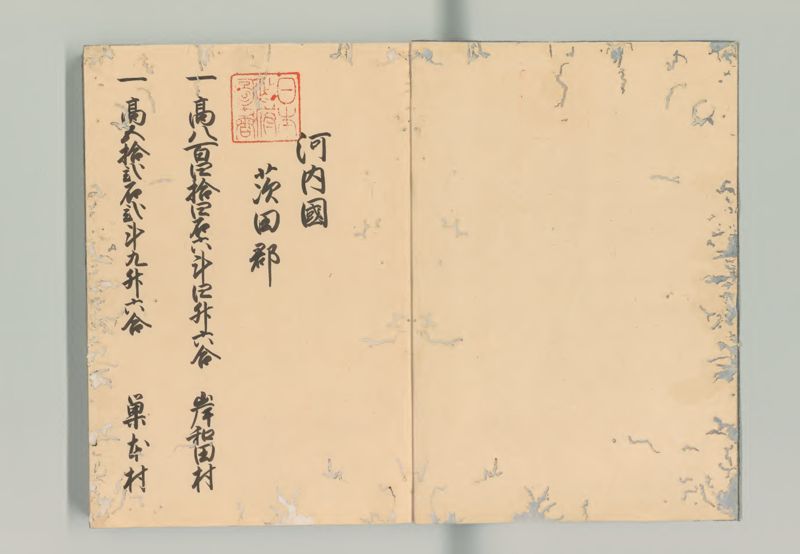 日本
政府
圖書
河内國
茨田郡
一 高八百四拾四石六斗四升六合 岸和田村
一 高 拾弐石弐斗九升六合 巣本村